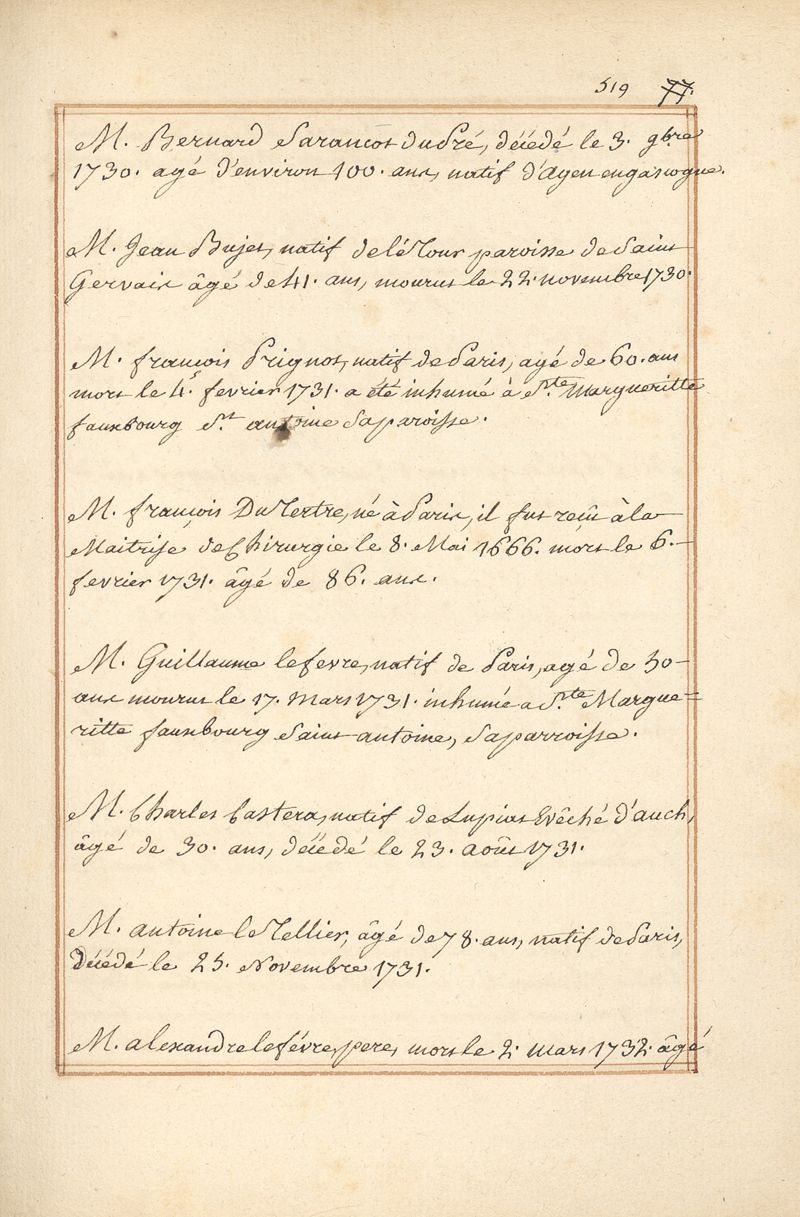 519 77.
M. Bernard Parancot du Pré, décédé le 3. 9bre
1730. agé d'environ 100. ans, natif d'Agen en gascogne.
M. Jean Bujet, natif de le Tour paroisse de Saint
Gervais âgé de 41. ans, mourut le 22. novembre 1730.
M. françois Prignot, natif de Paris, agé de 60. ans
mort le 4. fevrier 1731. a été inhumé à Ste. Margueritte
fauxbourg St. antoine Saparoisse.
M. françois DuTertre, né à Paris, il fut reçû à la
Maitrise de Chirurgie le 8. Mai 1666. mort le 6.
fevrier 1731. âgé de 86. ans.
M. Guillaume lefevre, natif de Paris, agé de 30
ans mourut le 17. Mars 1731. inhumé a Ste. Margue=
ritte fauxbourg Saint antoine, Saparroisse.
M. Charles Castera, natif de Lupiat Evêché d'auch,
âgé de 30. ans, décédé le 23. août 1731.
M. antoine le Tellier, âgé de 78. ans, natif de Paris,
Décédé le 25. Novembre 1731.
M. alexandre lefévre, pere, mort le 2. mars 1732. âgé